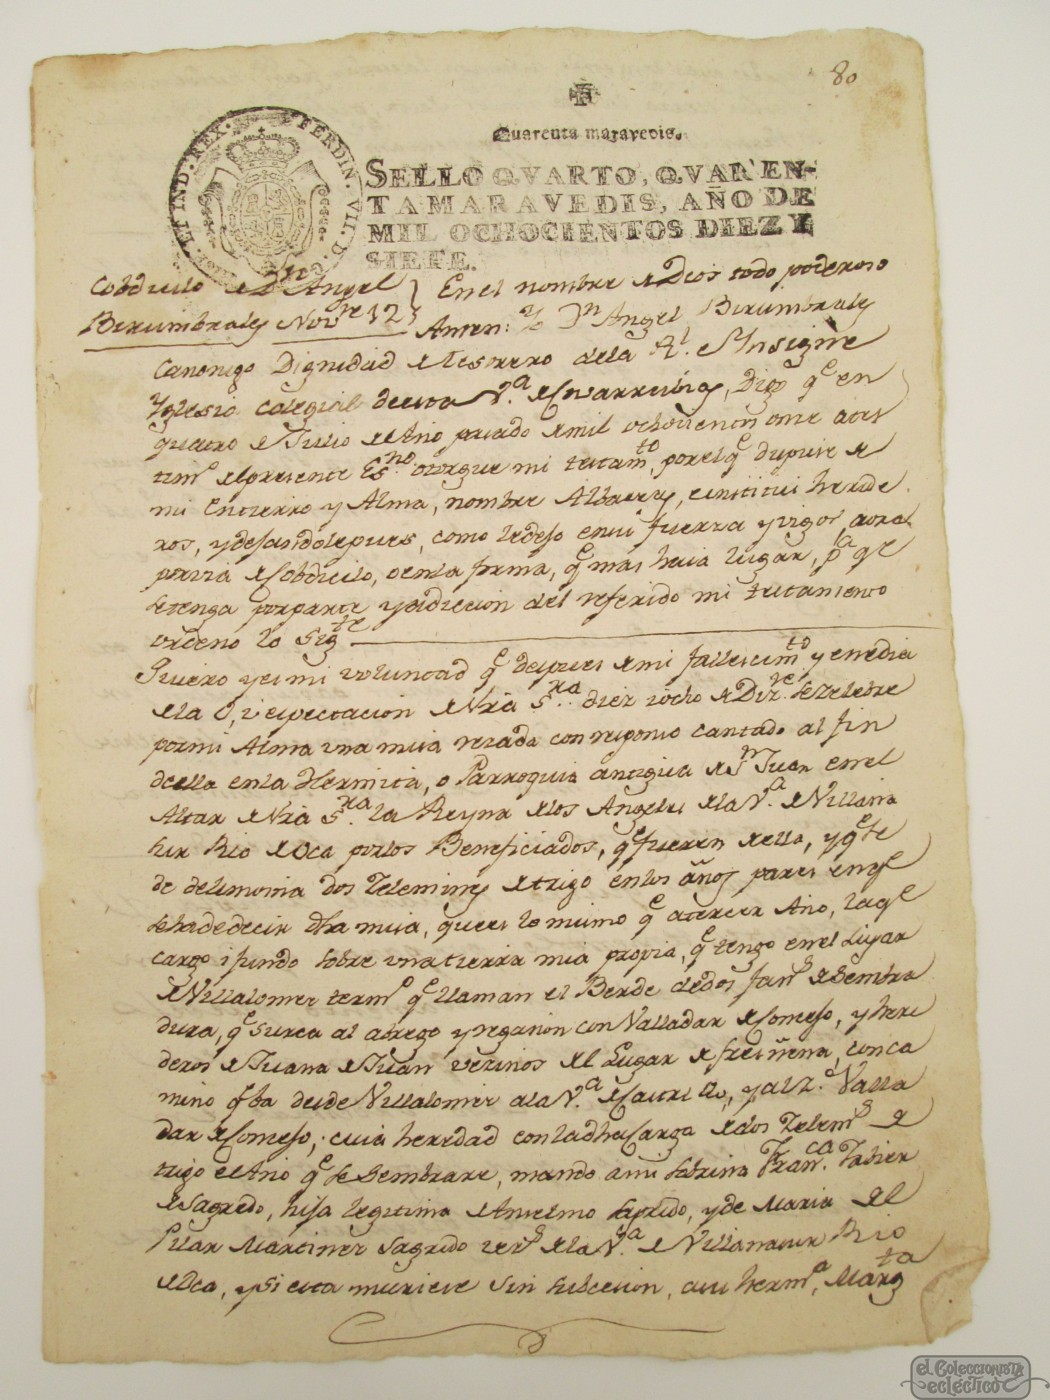 80
Quarenta maravedis.
SELLO QVARTO, QVAREN-
TAMARAVEDIS, AÑO DE
MIL OCHOCIENTOS DIEZ Y
SIETE.
FERDIN. VII. D. ET IND. REX.
Cobdicilo de Dn Angel
Berumbrales Novre 12
En el nombre de Dios todo poderoso
Amen: Yo Dn Angel Berumbrales
Canonigo Dignidad de Tesorero dela Rl. e Insigne
Yglesia Colegial de esta Va. de Covarrubias, Digo qe en
quatro de Julio del Año pasado de mil ochocientos once
el presente Esno otorgue mi testamto, por el qe dispuse de
mi Entierro y Alma, nombre Albaceas, e institui herede
ros, y dejandole pues, como le dejo en su fuerza y vigor, aora
por via de Cobdicilo, o en la forma, qe mas haia lugar, pa qe
se tenga por parte y adicion del referido mi testamento
ordeno lo sigte
Quiero y es mi voluntad qe despues de mi fallecimto y en el dia
de la O, i espectacion de Nra Sra. diez iocho de Dizre. se zelebre
por mi Alma una misa rezada con responso cantado al fin
de ella en la Hermita, o Parroquia antigua de Sn Juan en el
Altar de Nra Sra. la Reyna de los Angeles de la Va. de Villana
sur Rio de Oca por los Beneficiados, qe fueren de ella, y qe se
de de limosna dos Zelemines de trigo en los años pares en qe
se ha de decir dha misa, que es lo mismo qe a tercer Año, la qe
cargo i fundo sobre una tierra mia propia, qe tengo en el Lugar
de Villalomer termo qe llaman el Berde de dos fans de Sembra
dura, qe surca al abrego y regañon con Valladar de Comeso, y here
deros de Juana de Juan vezinos del Lugar de fresneña, con ca
mino qe ba desde Villalomer a la Va. de Castrillo, y al Zo. Valla
dar de Comeso; cuia heredad con la dha Carga de dos Zelems de
trigo el Año qe se Sembrare, mando a mi sobrina Franca.
de Sagredo, hija legitima de Anselmo Sagredo, y de Maria del
Pilar Martinez Sagredo vezs de la Va. de Villanasur Rio
de Oca, y si esta muriese sin subcesion, a su herma, Margta
el Coleccionista
eclectico